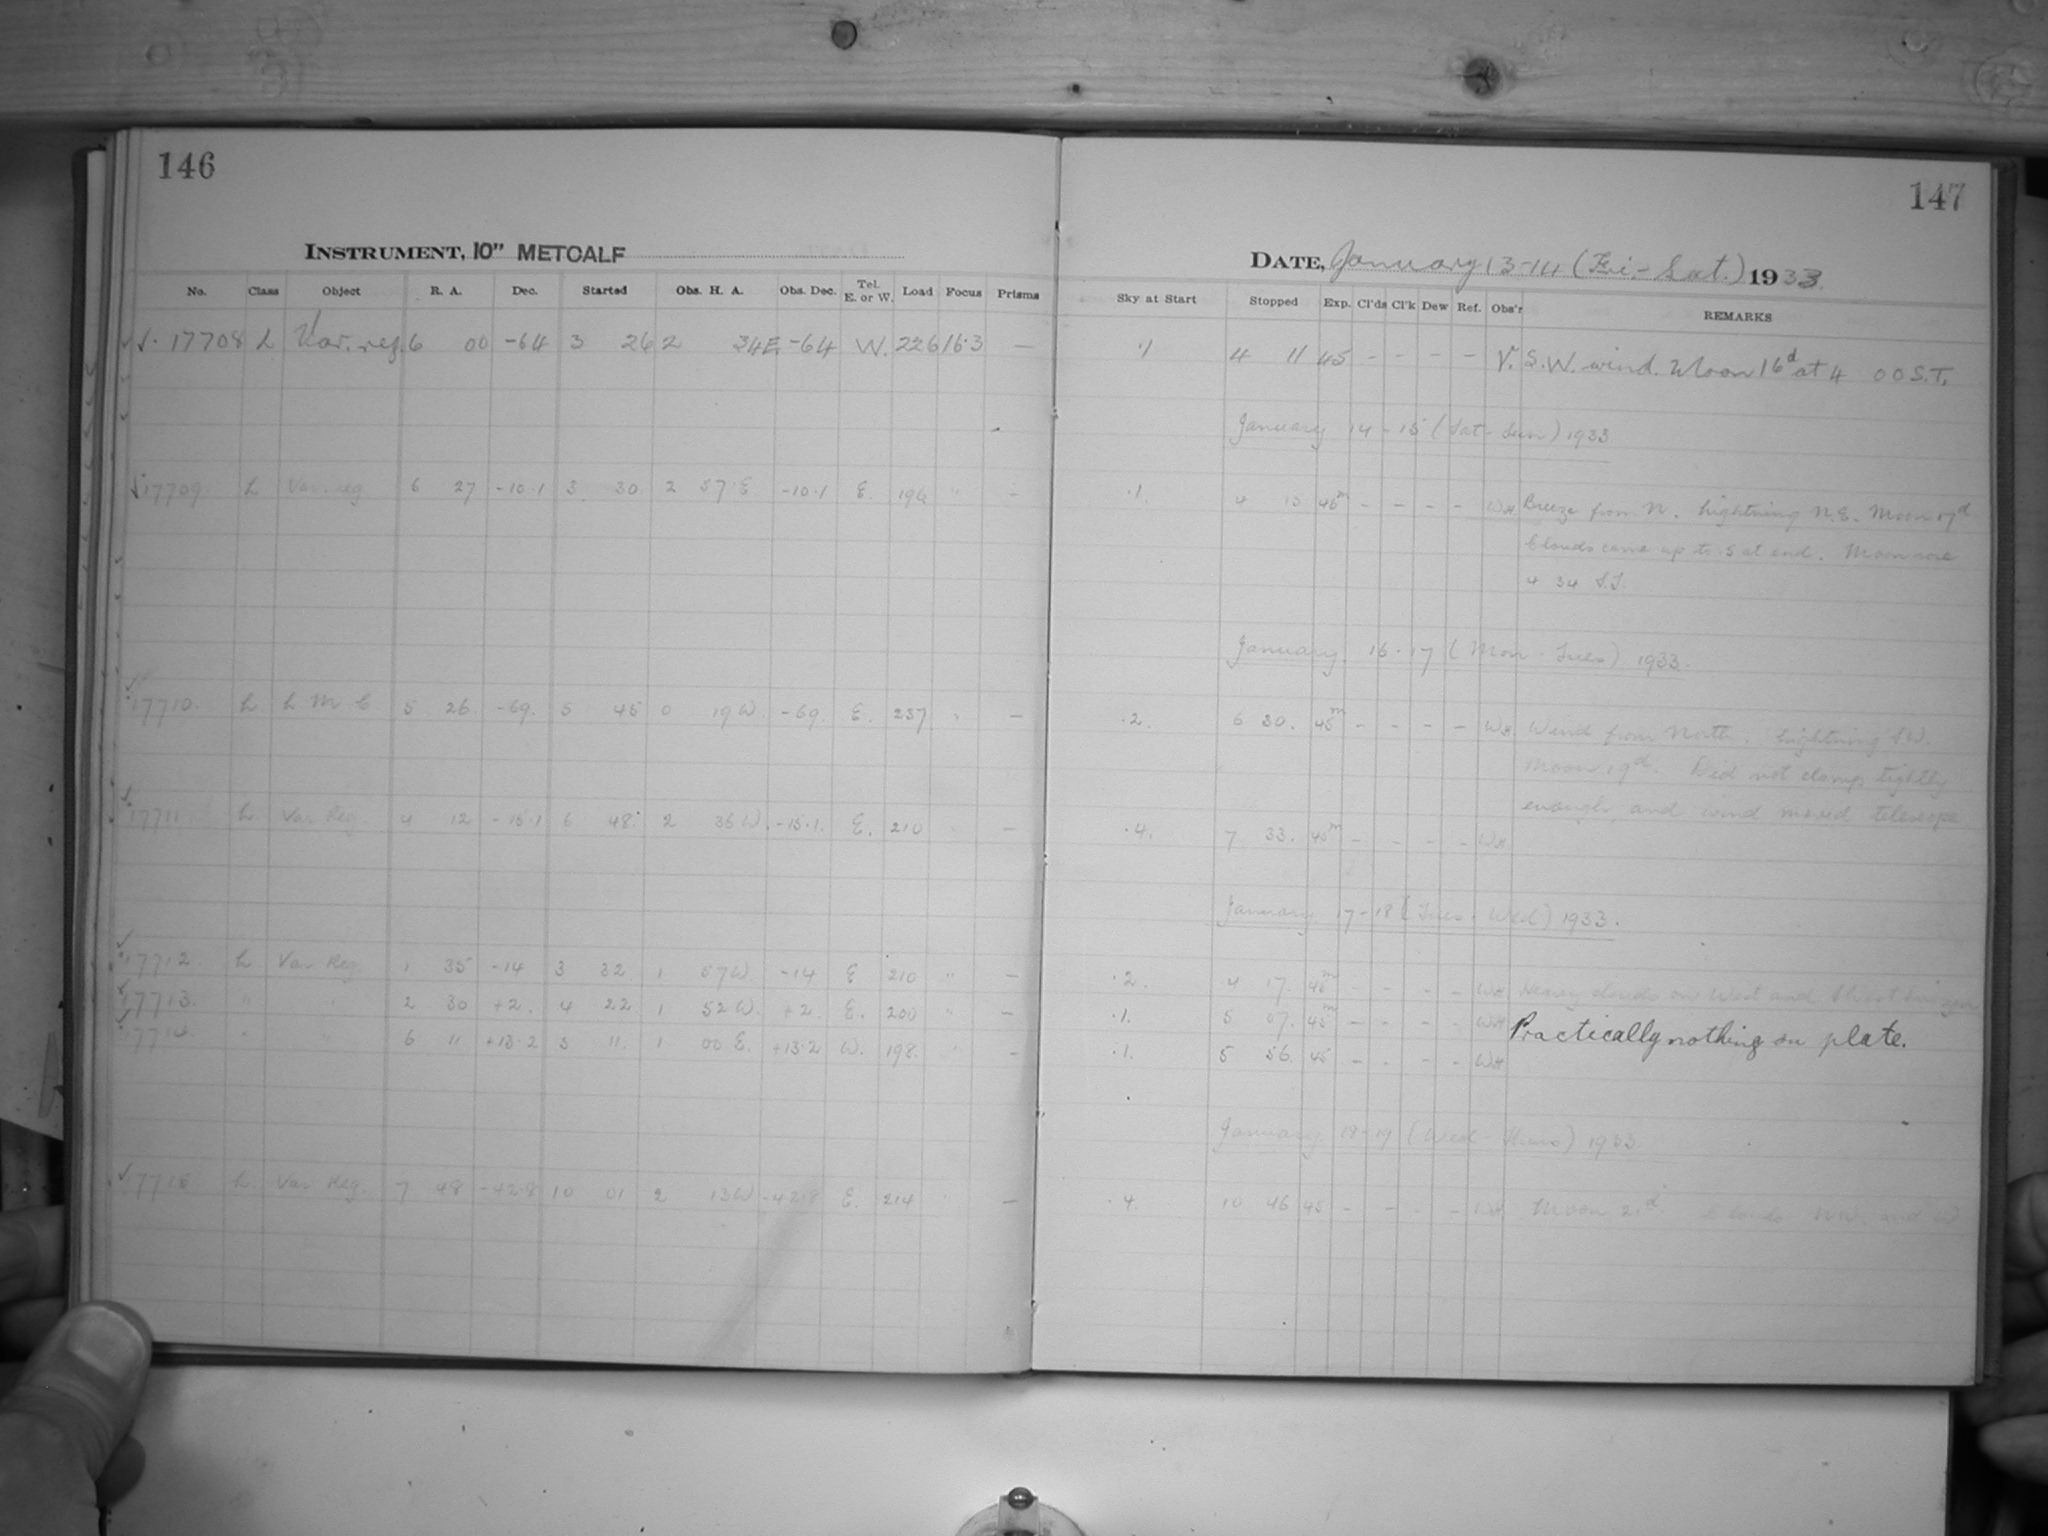 146
INSTRUMENT, 10" METCALF
No. Class Object R. A. Dec. Started Obs. H. A. Obs. Dec. Tel. E. or W. Load Focus Prisms
17708 L Var. reg. 6 00 -64 3 26 2 34 E -64 W. 226 16.3 —
17709 L Var. reg. 6 27 -10.1 3 30 2 57 E -10.1 E. 196 " —
17710 L L M C 5 26 -69. 5 45 0 19 W. -69. E. 237 " —
17711 L Var Reg. 4 12 -15.1 6 48. 2 36 W. -15.1. E. 210 —
17712 L Var Reg. 1 35 -14 3 32 1 57 W -14 E 210 " —
17713. " " 2 30 +2. 4 22 1 52 W. +2. E. 200 " —
17714. " " 6 11 +13.2 5 11. 1 00 E. +13.2 W. 198. " —
17715 L. Var Reg. 7 48 -42.8 10 01 2 13 W -42.8 E. 214 —
147
DATE, January 13-14 (Fri.-Sat.) 1933.
Sky at Start Stopped Exp. Cl'ds Cl'k Dew Ref. Obs'r REMARKS
.1 4 11 45 - - - - V. S.W. wind. Moon 16d at 4 00 S.T.
January 14-15 (Sat-Sun) 1933
.1. 4 15 45m - - - - WH Breeze from N. Lightning N.E. Moon 17d
Clouds came up to .5 at end. Moon rose
4 34 S.T.
January 16-17 (Mon-Tues) 1933.
.2. 6 30. 45m - - - - WH. Wind from North. Lightning SW.
Moon 19d. Did not clamp tightly
enough, and wind moved telescope
.4. 7 33. 45m - - - - WH
January 17-18 (Tues-Wed) 1933.
.2. 4 17. 45m - - - - WH Heavy clouds on West and
.1. 5 07. 45m - - - - WH Practically nothing on plate.
.1. 5 56. 45 - - - - WH
January 18-19 (Wed-Thurs) 1933.
.4. 10 46 45 - - - - WH Moon 21d Clouds NW. and W